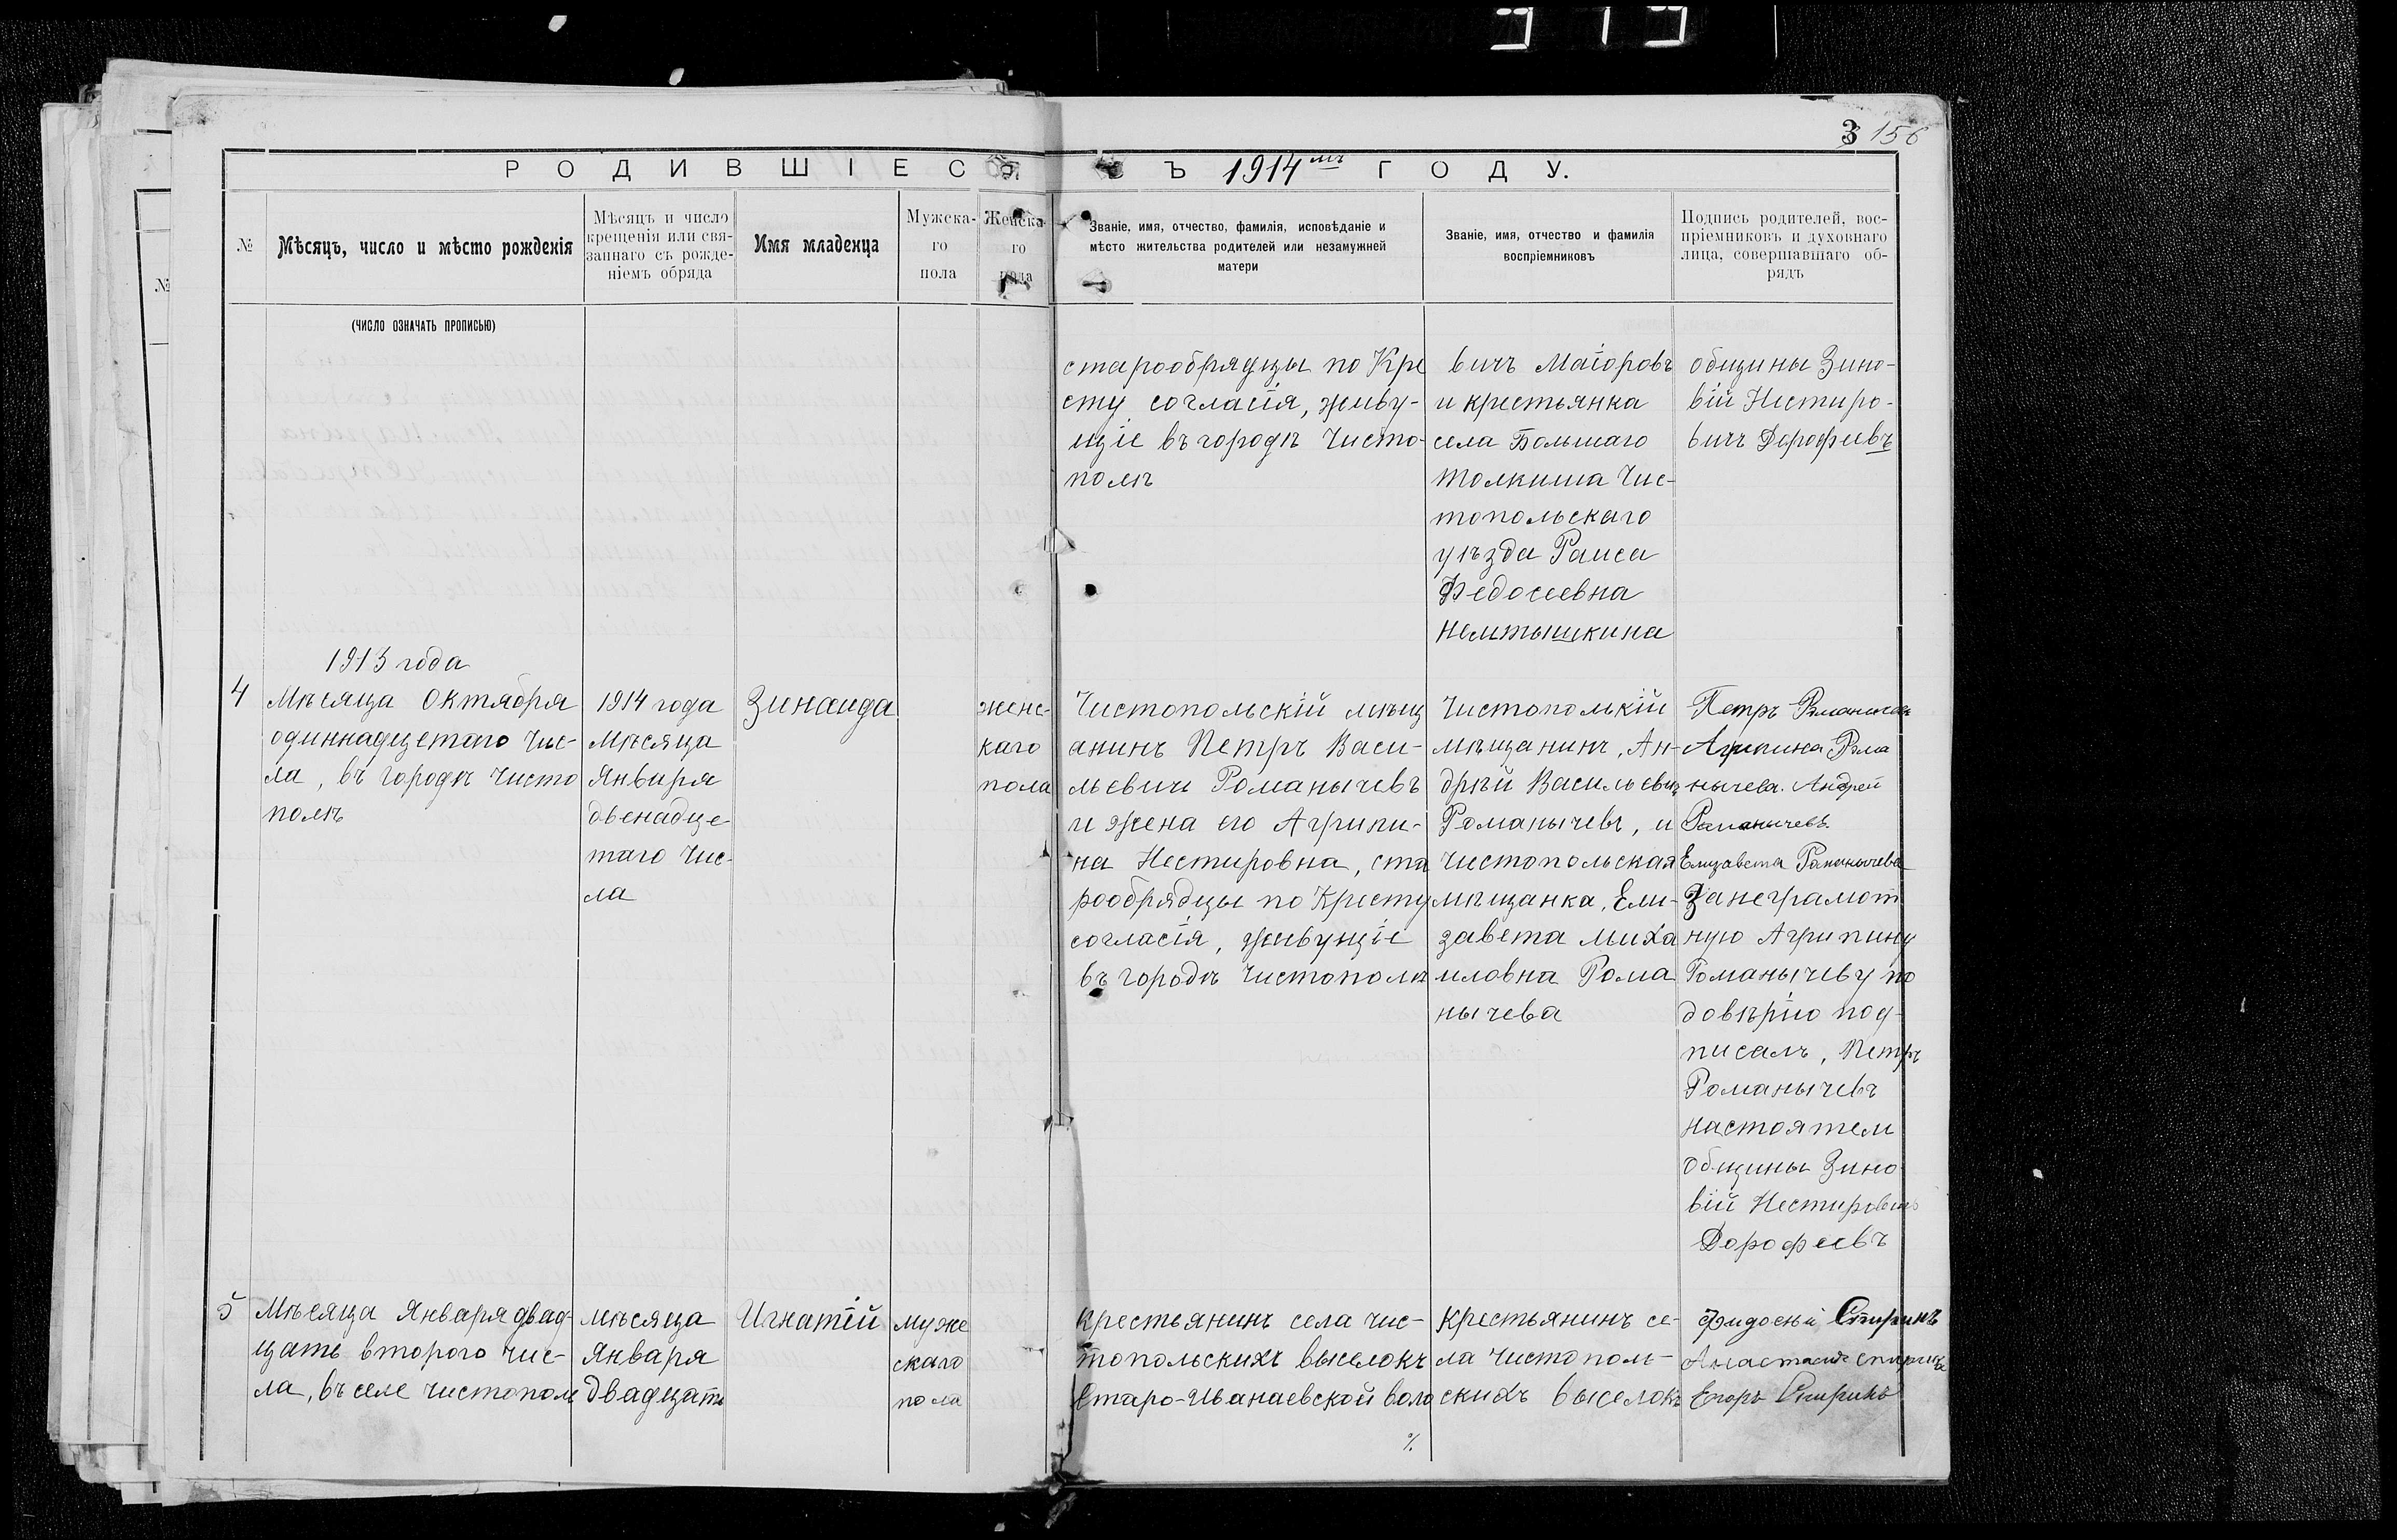 919
3 156
РОДИВШІЕСЯ ВЪ 1914мъ ГОДУ.
№
Мѣсяцъ, число и мѣсто рожденія
Мѣсяцъ и число
крещенія или свя-
заннаго съ рожде-
ніемъ обряда
Имя младенца
Мужска-
го
пола
Женска-
го
пола
Званіе, имя, отчество, фамилія, исповѣданіе и
мѣсто жительства родителей или незамужней
матери
Званіе, имя, отчество и фамилія
воспріемниковъ
Подпись родителей, вос-
пріемниковъ и духовнаго
лица, совершавшаго об-
рядъ
(ЧИСЛО ОЗНАЧАТЬ ПРОПИСЬЮ)
старообрядцы по Кре
сту согласія, живу-
щіе въ городѣ Чисто-
полѣ
вичъ Маіоровъ
и крестьянка
села Большаго
Толкиша Чис-
топольскаго
уѣзда Раиса
Федосеевна
Немтышкина
общины Зино-
вій Нестиро-
вичъ Дорофеевъ
4
1913 года
Мѣсяца Октября
одиннадцетаго Чис-
ла, въ городѣ Чисто
полѣ
1914 года
Мѣсяца
Января
двенадце-
таго Чис-
ла
Зинаида
женс-
каго
пола
Чистопольскій мѣщ
анинъ Петръ Васи-
льевичъ Романычевъ
и жена его Агрипи-
на Нестировна, ста
рообрядцы по Кресту
согласія, живущіе
въ городѣ Чистополѣ
Чистополькій
мѣщанинъ, Ан-
дрѣй Васильевичъ
Романычевъ, и
Чистопольская
мѣщанка, Ели-
завета Миха
иловна Рома
нычева
Петръ Романычевъ
Агрипина Рома
нычева. Андрей
Романычевъ.
Елизавета Романычева
За неграмот
ную Агрипину
Романычеву по
довѣрію под-
писалъ, Петръ
Романычевъ
настоятель
общины Зино
вій Нестировичъ
Дорофеевъ
5
Мѣсяца Января двад-
цать второго Чис-
ла, въ селе Чистопол
мѣсяца
Января
двадцать
Игнатій
муже
скаго
пола
Крестьянинъ села Чис-
топольскихъ выселокъ
Старо-Иванаевской воло
%
Крестьянинъ се-
ла Чистополь-
скихъ выселокъ
Фидосый Спиринъ
Анастасия Спирина
Егоръ Спиринъ